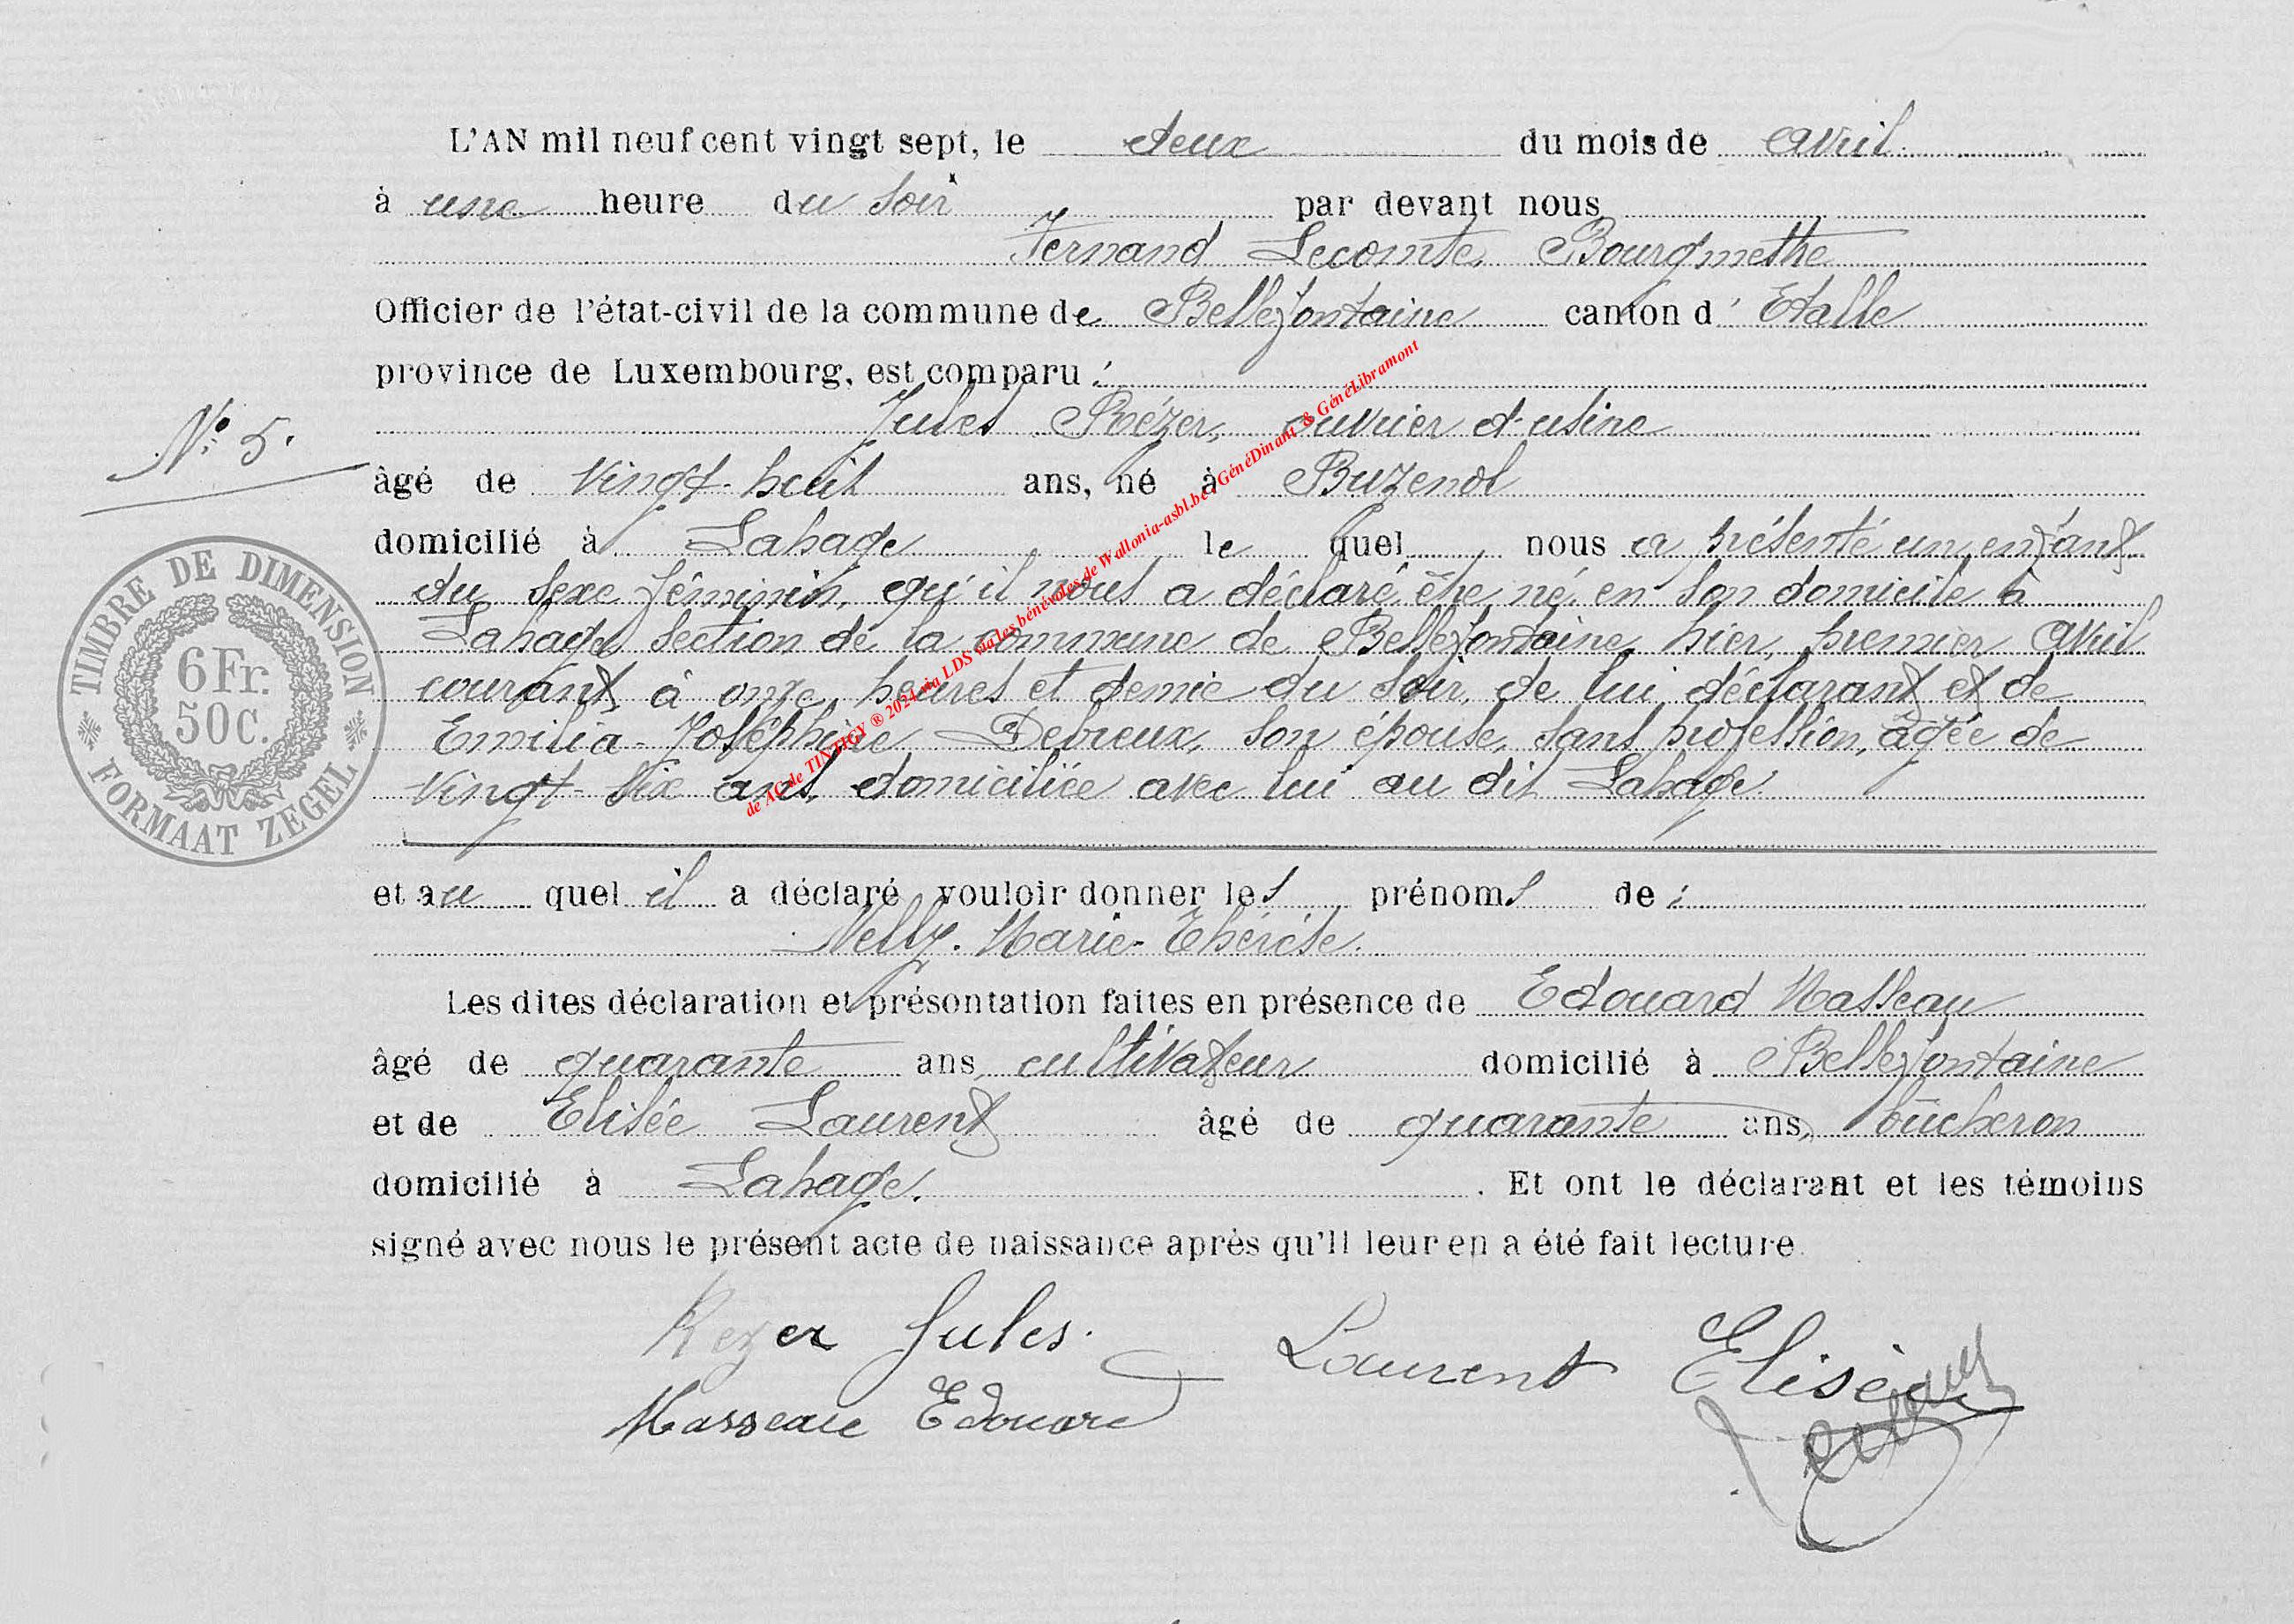 L'AN mil neuf cent vingt sept, le deux du mois de avril
à une heure du soir par devant nous
Fernand Lecomte, Bourgmestre
Officier de l'état-civil de la commune de Bellefontaine canton d' Etalle
province de Luxembourg, est comparu :
Jules Rézer, ouvrier d'usine
N° 5.
âgé de vingt-huit ans, né à Buzenol
domicilié à Lahage le quel nous a présenté un enfant
du sexe féminin, qu'il nous a déclaré être né en son domicile à
Lahage section de la commune de Bellefontaine, hier, premier avril
courant, à onze heures et demie du soir, de lui déclarant et de
Emilia-Joséphine Debreux, son épouse, sans profession, âgée de
vingt-six ans, domiciliée avec lui au dit Lahage
TIMBRE DE DIMENSION
6 Fr.
50 C.
FORMAAT ZEGEL
et au quel il a déclaré vouloir donner les prénoms de :
Nelly-Marie-Thérèse.
Les dites déclaration et présontation faites en présence de Edouard Masseau
âgé de quarante ans, cultivateur domicilié à Bellefontaine
et de Elisée Laurent âgé de quarante ans, bûcheron
domicilié à Lahage. . Et ont le déclarant et les témoins
signé avec nous le présent acte de naissance après qu'il leur en a été fait lecture.
Rezer Jules. Laurent Elisée
Masseau Edouard
de AG de TINTIGY ® 2024 via LDS via les bénévoles de Wallonia-asbl.be, GénéDinant & GénéLibramont